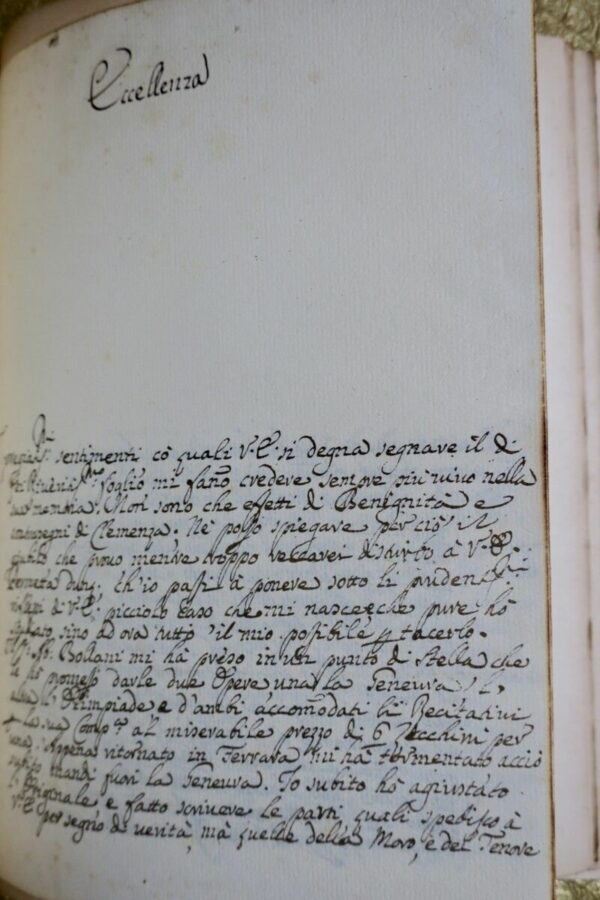 Eccellenza
sentimenti cō quali V. E. si degna segnare il di
foglio mi fano credere sempre piu vivo nella
memoria. Non sono che effetti di Benignità e
contrasegni di Clemenza; Ne posso spiegare per ciò il
giubilo che provo mentre troppo reccarei disturbo à V. E.
ch'io passi à poneve sotto li prudentissi:mi
riflessi di V. E. picciolo caso che mi nasce, e che pure hò
sino ad ora tutto il mio possibile p tacerlo.
Bollani mi hà preso in un punto di Stella che
hò promesso darle due Opere una la Geneura, l,
l'Olimpiade e d'ambi accommodati li Recitativi
la sua Comp:a al miserabile prezzo di 6 Zecchini per
una. Appena ritornato in Ferrara mi hà tormentato acciò
subito mandi fuori la Geneura. Io subito hò agiustato
l'Originale e fatto scrivere le parti quali spedisco à
V. E. per segno di verità, mà quelle della Moro, e del Tenore